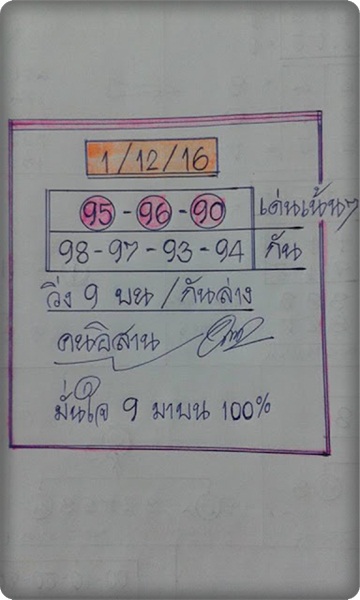 1/12/16
95 - 96 - 90 เด่นเน้นๆ
98 - 97 - 93 - 94 กัน
วิ่ง 9 บน / กันล่าง
คนอิสาน
มั่นใจ 9 มาบน 100%